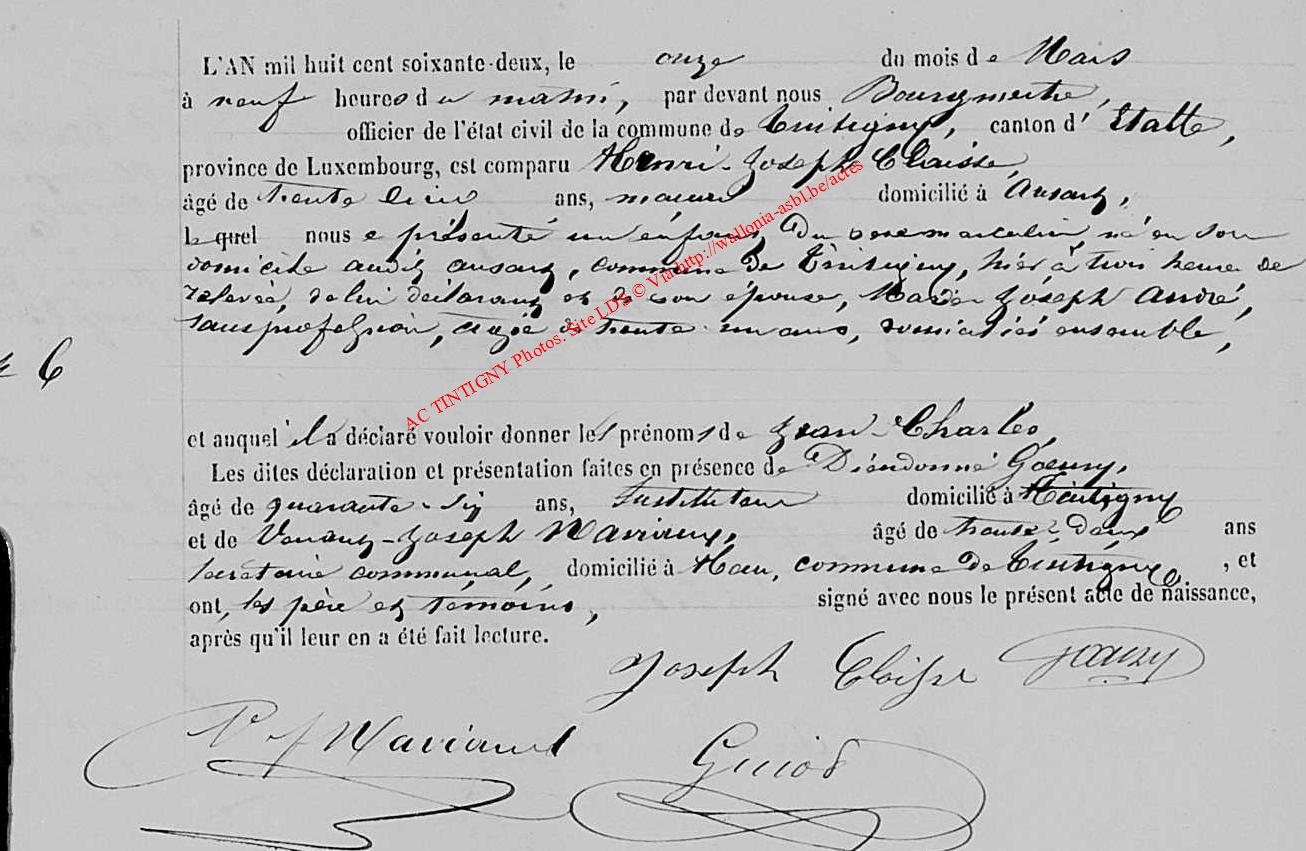 L'AN mil huit cent soixante-deux, le onze du mois de Mars
à neuf heures du matin, par devant nous Bourgmestre,
officier de l'état civil de la commune de Tintigny, canton d'Etalle,
province de Luxembourg, est comparu Henri-Joseph Cloisse,
âgé de trente ans, domicilié à Ansart,
lequel nous a présenté un enfant du sexe masculin, né en son
domicile audit Ansart, commune de Tintigny, hier à trois heures de
relevée, de lui déclarant et de son épouse, Marie Joseph André,
sans profession, âgée de trente un ans, domiciliés ensemble,
6
et auquel il a déclaré vouloir donner les prénoms de Jean-Charles,
Les dites déclaration et présentation faites en présence de Dieudonné Goeury,
âgé de quarante-six ans, Instituteur domicilié à Tintigny
et de Venant-Joseph âgé de trente-deux ans
Secrétaire communal, domicilié à Han, commune de Tintigny, et
ont, les père et témoins, signé avec nous le présent acte de naissance,
après qu'il leur en a été fait lecture.
Joseph Cloisse Goeury
Guiot
AC TINTIGNY Photos: Site LDS © Via http://wallonia-asbl.be/actes